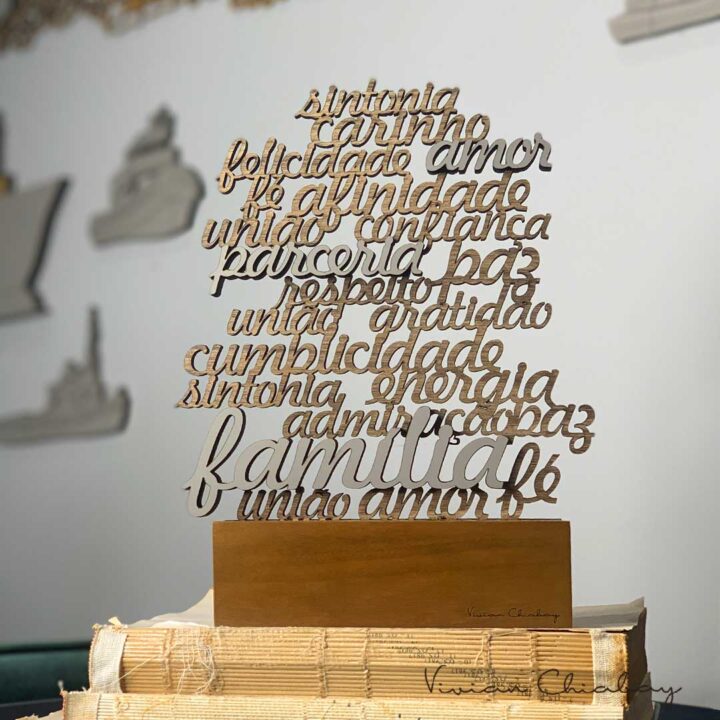 sintonia
carinho
felicidade amor
fé afinidade
união confiança
parceria paz
respeito fé
união gratidão
cumplicidade
sintonia energia
admiração paz
família
união amor fé
Vivian Chiabay
Vivian Chiabay